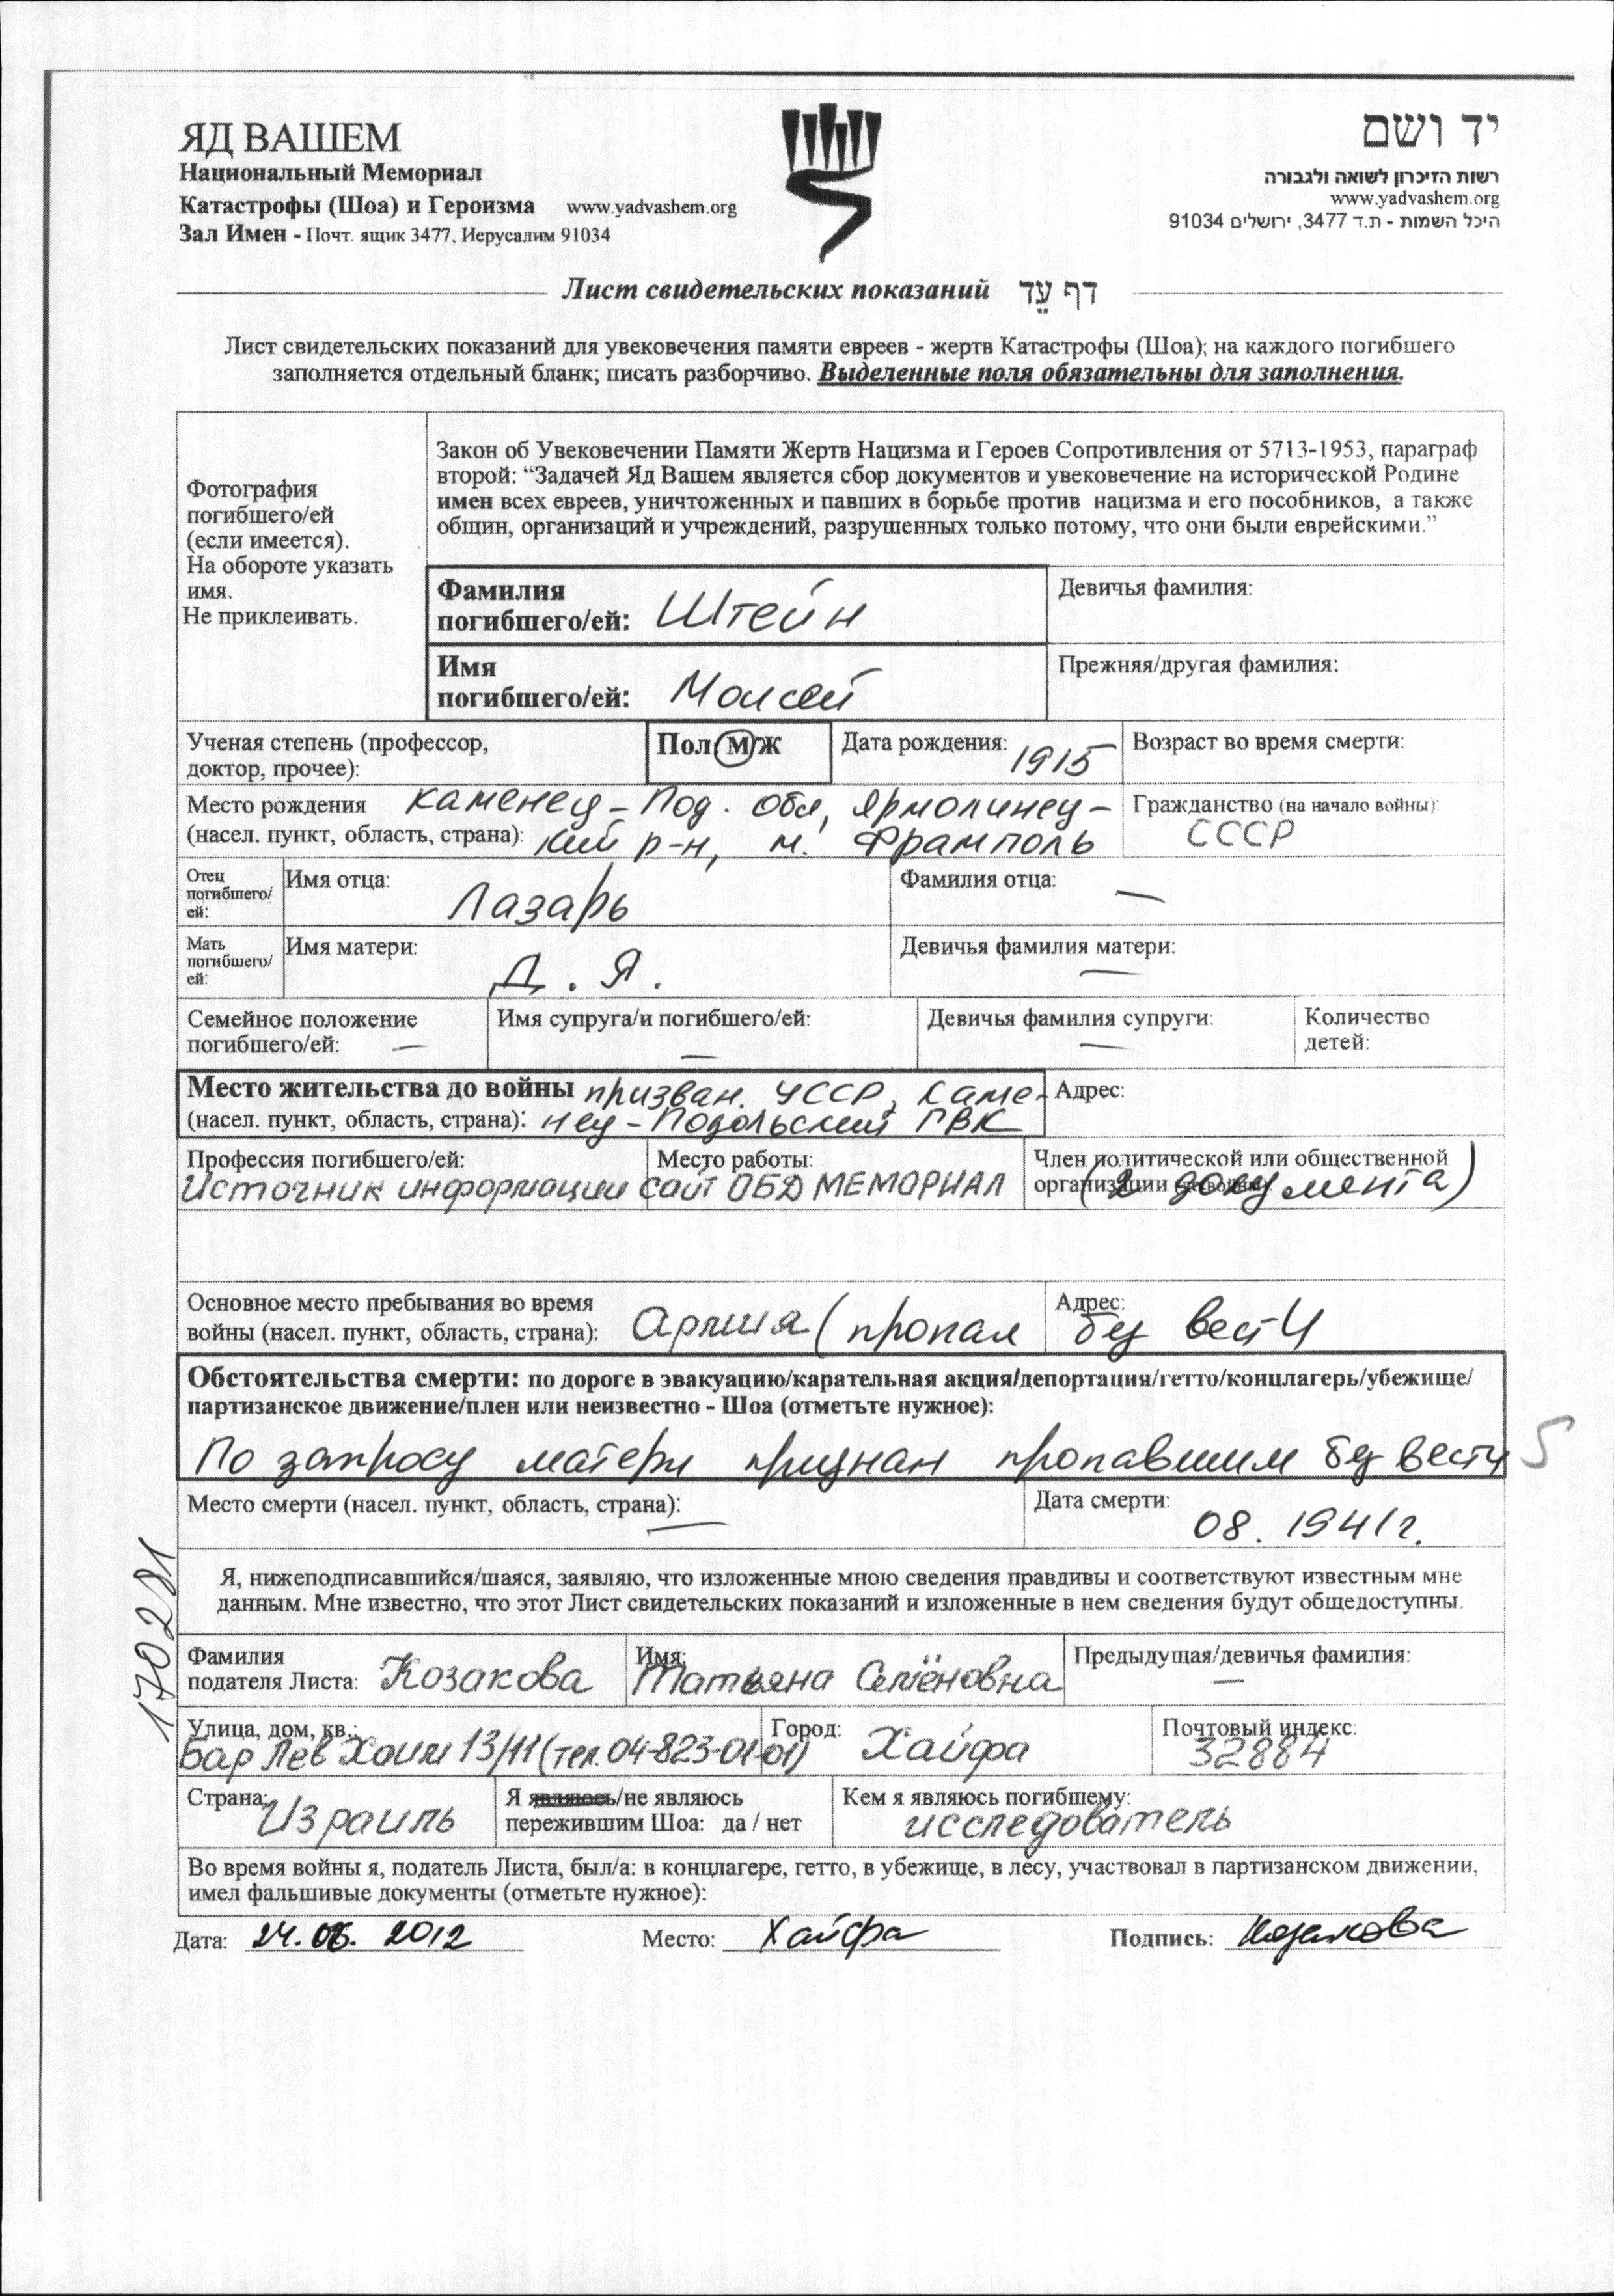 ЯД ВАШЕМ
Национальный Мемориал
Катастрофы (Шоа) и Героизма www.yadvashem.org
Зал Имен - Почт. ящик 3477, Иерусалим 91034
יד ושם
רשות הזיכרון לשואה ולגבורה
www.yadvashem.org
היכל השמות - ת.ד 3477, ירושלים 91034
Лист свидетельских показаний דף עֵד
Лист свидетельских показаний для увековечения памяти евреев - жертв Катастрофы (Шоа); на каждого погибшего
заполняется отдельный бланк; писать разборчиво. Выделенные поля обязательны для заполнения.
Фотография
погибшего/ей
(если имеется).
На обороте указать
имя.
Не приклеивать.
Закон об Увековечении Памяти Жертв Нацизма и Героев Сопротивления от 5713-1953, параграф
второй: “Задачей Яд Вашем является сбор документов и увековечение на исторической Родине
имен всех евреев, уничтоженных и павших в борьбе против нацизма и его пособников, а также
общин, организаций и учреждений, разрушенных только потому, что они были еврейскими.”
Фамилия
погибшего/ей: Штейн
Девичья фамилия:
Имя
погибшего/ей: Моисей
Прежняя/другая фамилия:
Ученая степень (профессор,
доктор, прочее):
Пол М/Ж
Дата рождения: 1915
Возраст во время смерти:
Место рождения Каменец-Под. обл, Ярмолинец-
(насел. пункт, область, страна): кий р-н, м. Фрамполь
Гражданство (на начало войны):
СССР
Отец
погибшего/
ей:
Имя отца: Лазарь
Фамилия отца: —
Мать
погибшего/
ей:
Имя матери: Д. Я.
Девичья фамилия матери: —
Семейное положение
погибшего/ей: —
Имя супруга/и погибшего/ей: —
Девичья фамилия супруги: —
Количество
детей:
Место жительства до войны призван. УССР, Каме-
(насел. пункт, область, страна): нец-Подольский ГВК
Адрес:
Профессия погибшего/ей: Место работы: Член политической или общественной
организации
Источник информации сайт ОБД МЕМОРИАЛ (2 документа)
Основное место пребывания во время
войны (насел. пункт, область, страна): Армия (пропал
Адрес:
без вести
Обстоятельства смерти: по дороге в эвакуацию/карательная акция/депортация/гетто/концлагерь/убежище/
партизанское движение/плен или неизвестно - Шоа (отметьте нужное):
По запросу матери признан пропавшим без вести 5
Место смерти (насел. пункт, область, страна): —
Дата смерти:
08. 1941г.
170281
Я, нижеподписавшийся/шаяся, заявляю, что изложенные мною сведения правдивы и соответствуют известным мне
данным. Мне известно, что этот Лист свидетельских показаний и изложенные в нем сведения будут общедоступны.
Фамилия
подателя Листа: Козакова
Имя:
Татьяна Семёновна
Предыдущая/девичья фамилия:
—
Улица, дом, кв.:
Бар Лев Хаим 13/11 (тел. 04-823-01-01)
Город: Хайфа
Почтовый индекс:
32884
Страна: Израиль
Я являюсь/не являюсь
пережившим Шоа: да / нет
Кем я являюсь погибшему:
исследователь
Во время войны я, податель Листа, был/а: в концлагере, гетто, в убежище, в лесу, участвовал в партизанском движении,
имел фальшивые документы (отметьте нужное):
Дата: 24.06. 2012 Место: Хайфа Подпись: Козакова